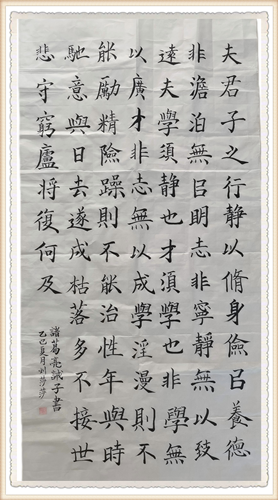 夫君子之行静以脩身儉㠯養德
非澹泊無㠯明志非寧靜無以致
遠夫學須静也才須學也非學無
以廣才非志無以成學淫漫則不
能勵精險躁則不能治性年與時
馳意與日去遂成枯落多不接世
悲守窮廬將復何及
諸葛亮誡子書
乙巳夏月刘莎莎